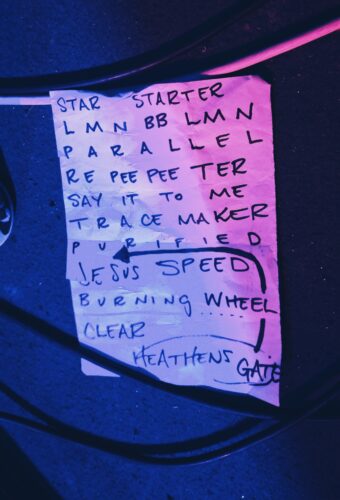 STAR STARTER
LMN BB LMN
PARALLEL
REPEEPEETER
SAY IT TO ME
TRACE MAKER
PURIFIED
JESUS SPEED
BURNING WHEEL
CLEAR
HEATHENS GATE